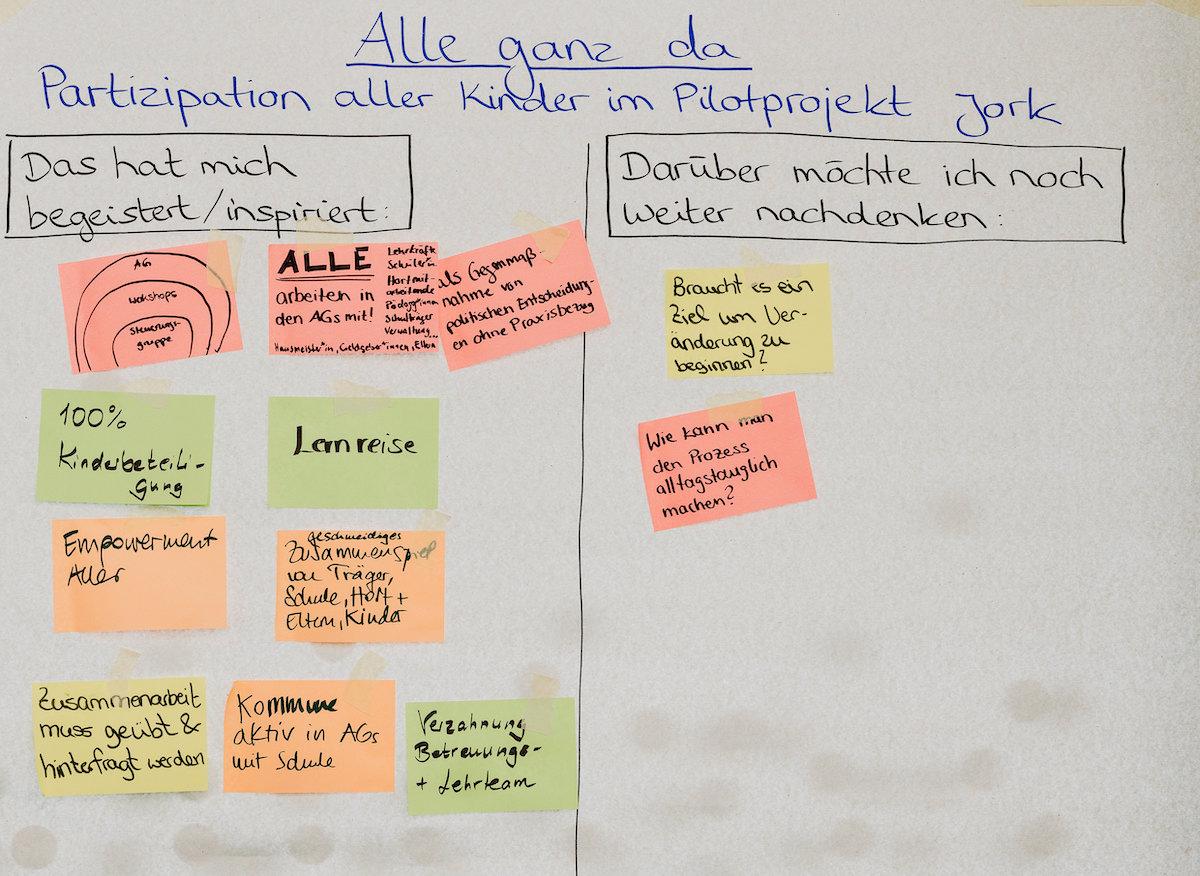 Alle ganz da
Partizipation aller Kinder im Pilotprojekt Jork
Das hat mich
begeistert/inspiriert:
AG
Wokshops
Steuerungs-
gruppe
ALLE
arbeiten in
den AGs mit!
Lehrkräfte
Schüler*in
Hortmit-
arbeitende
Pädagog*innen
Schulträger
Verwaltung...
Hausmeister*in, Geldgeber*innen, Eltern
als Gegenmaß-
nahme von
politischen Entscheidung-
en ohne Praxisbezug
100%
Kinderbeteili-
gung
Lernreise
Empowerment
Aller
geschmeidiges
Zusammenspiel
von Träger,
Schule, Hort +
Eltern, Kinder
Zusammenarbeit
muss geübt &
hinterfragt werden
Kommune
aktiv in AGs
mit Schule
Verzahnung
Betreuungs-
+ Lehrteam
Darüber möchte ich noch
weiter nachdenken:
Braucht es ein
Ziel um Ver-
änderung zu
beginnen?
Wie kann man
den Prozess
alltagstauglich
machen?